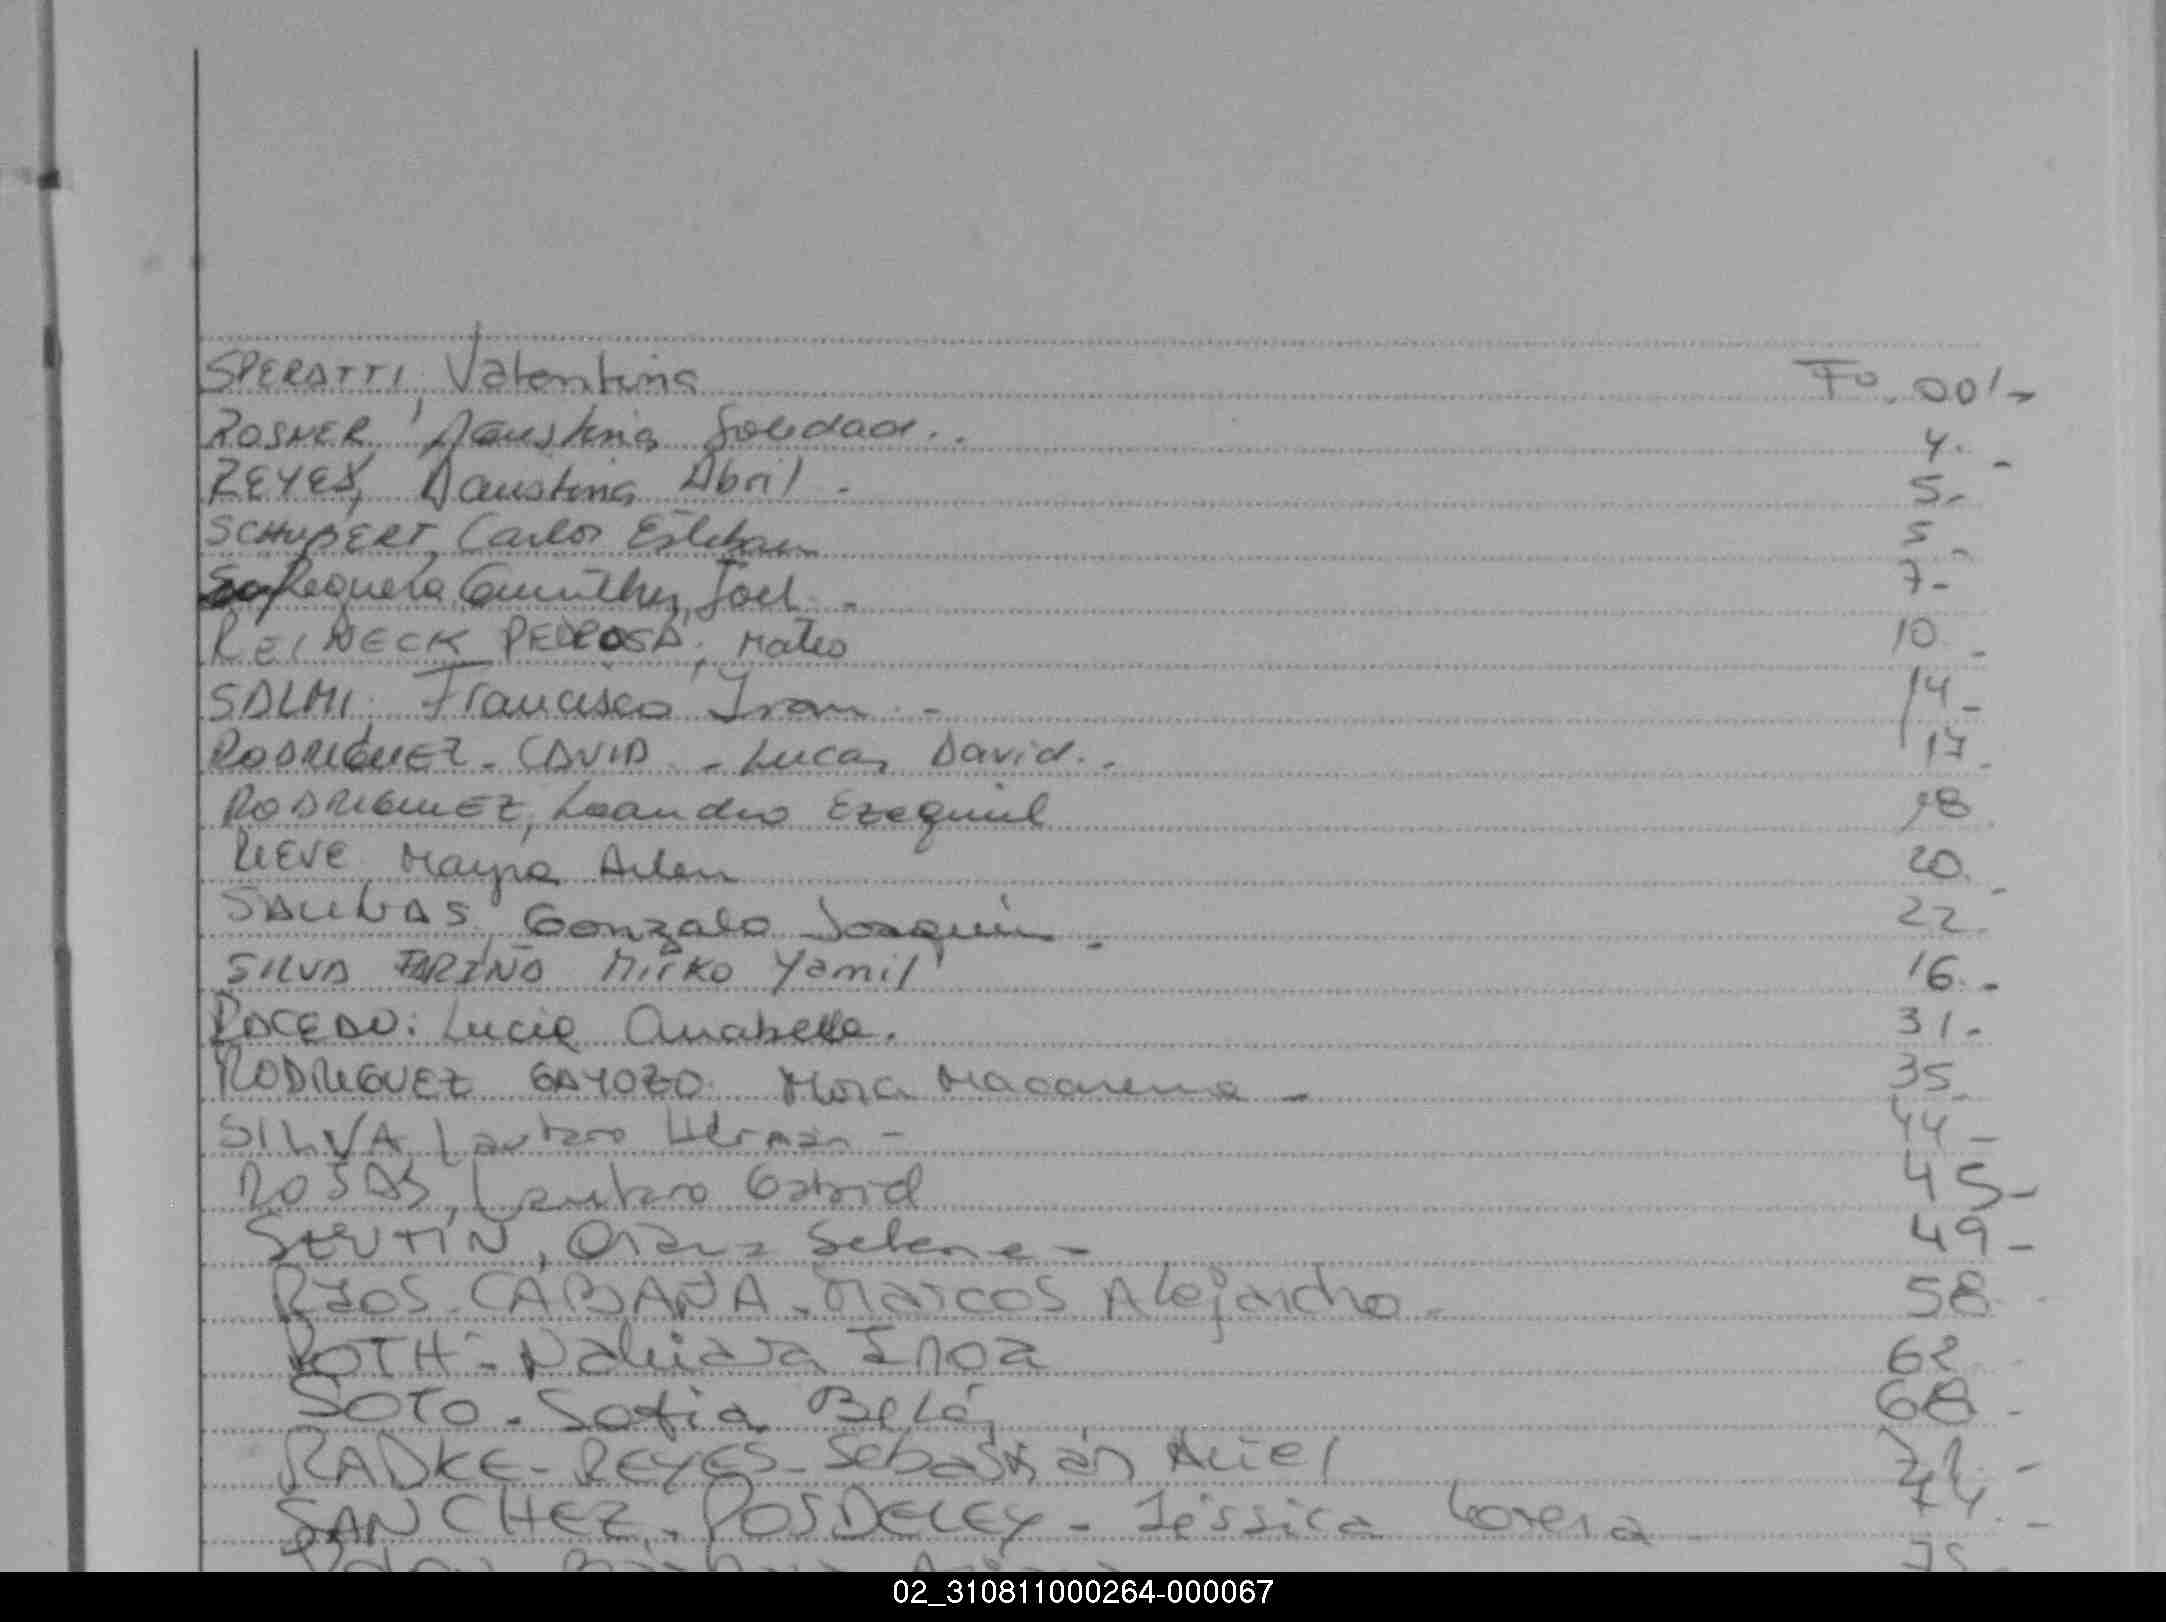 SPERATTI, Valentina Fº. 001-
ROSNER, Faustina Soledad.. 4.-
REYES, Faustina Abril. 5.-
SCHUBERT, Carlos Esteban 5.-
Requera Gunther, Joel.- 7-
REINECK PEDROSA, Mateo 10.-
SALMI, Francisco Ivan.- 14-
RODRIGUEZ-CAVIA-Lucas David.. 17.
RODRIGUEZ, Leandro Ezequiel 18.
RIEVE Mayra Arlen 20.-
SALINAS, Gonzalo Joaquin.- 22.
SILVA FARIÑA Mirko Yamil 16.-
RACEDO: Lucia Anabella. 31.-
RODRIGUEZ GAYOZO. Mora Macarena- 35.-
SILVA, Lautaro Hernán- 44-
ROSAS, Lautaro Gabriel 45-
SERVIN, Oriana Selene- 49-
RIOS-CABAÑA-Marcos Alejandro- 58-
ROTH-Nahiara Inoa 62-
SOTO-Sofia Belén 68-
RADKE-REYES-Sebastián Ariel 71.-
SANCHEZ-POSDELEY-Jéssica Lorena- 74.-
75-
02_310811000264-000067